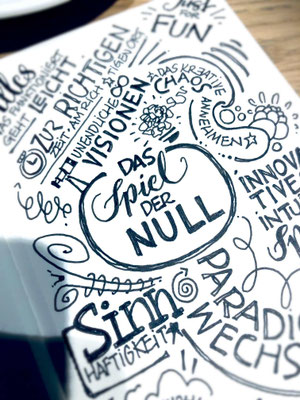 Just
FOR
FUN
GEHT LEICHT
ZUR RICHTIGEN
ZEIT AM RICHT
UNENDLICHE
VISIONEN
DAS KREATIVE
CHAOS
ANNEHMEN
DAS
Spiel
DER
NULL
INNOVA
TIVE
INTU
Sinn
HAFTIGKEIT
PARADI
WECHS